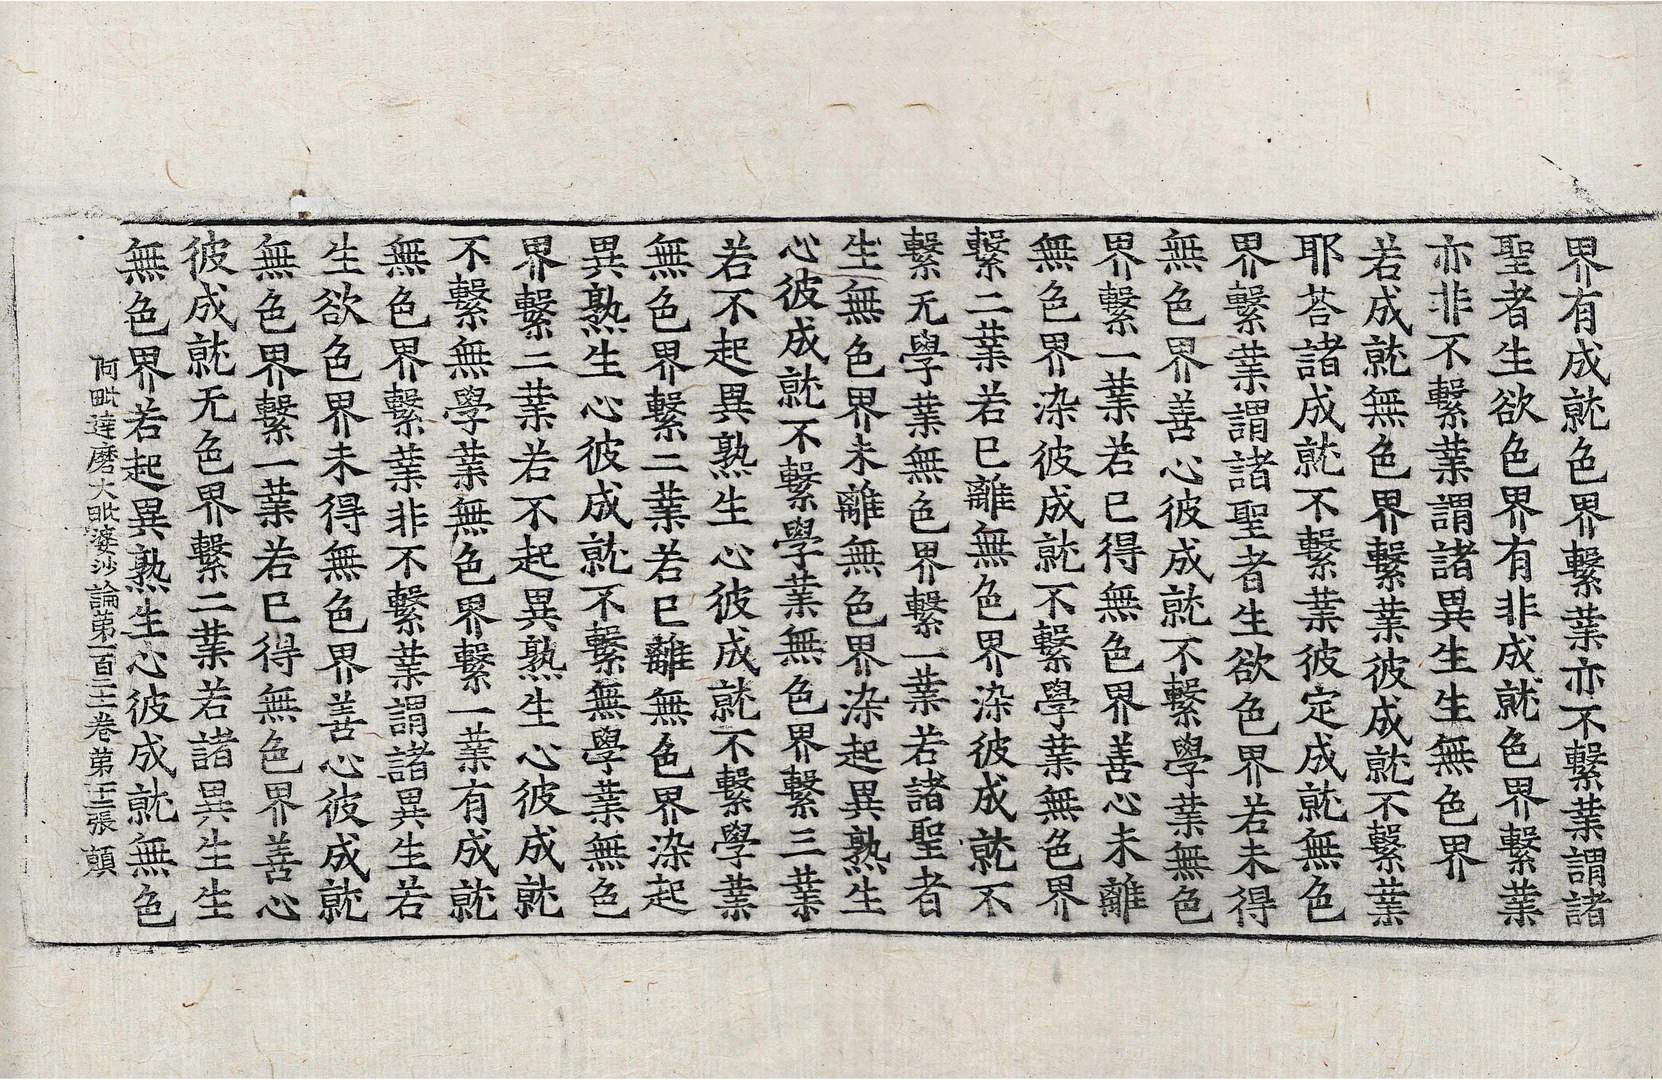 界有成就色界繫業亦不繫業謂諸
聖者生欲色界有非成就色界繫業
亦非不繫業謂諸異生生無色界
若成就無色界繫業彼成就不繫業
耶荅諸成就不繫業彼定成就無色
界繫業謂諸聖者生欲色界若未得
無色界善心彼成就不繫學業無色
界繫一業若已得無色界善心未離
無色界染彼成就不繫學業無色界
繫二業若已離無色界染彼成就不
繫无學業無色界繫一業若諸聖者
生無色界未離無色界染起異熟生
心彼成就不繫學業無色界繫三業
若不起異熟生心彼成就不繫學業
無色界繫二業若已離無色界染起
異熟生心彼成就不繫無學業無色
界繫二業若不起異熟生心彼成就
不繫無學業無色界繫一業有成就
無色界繫業非不繫業謂諸異生若
生欲色界未得無色界善心彼成就
無色界繫一業若已得無色界善心
彼成就无色界繫二業若諸異生生
無色界若起異熟生心彼成就無色
阿毗達磨大毗婆沙論第一百二十二卷第十二張 顛